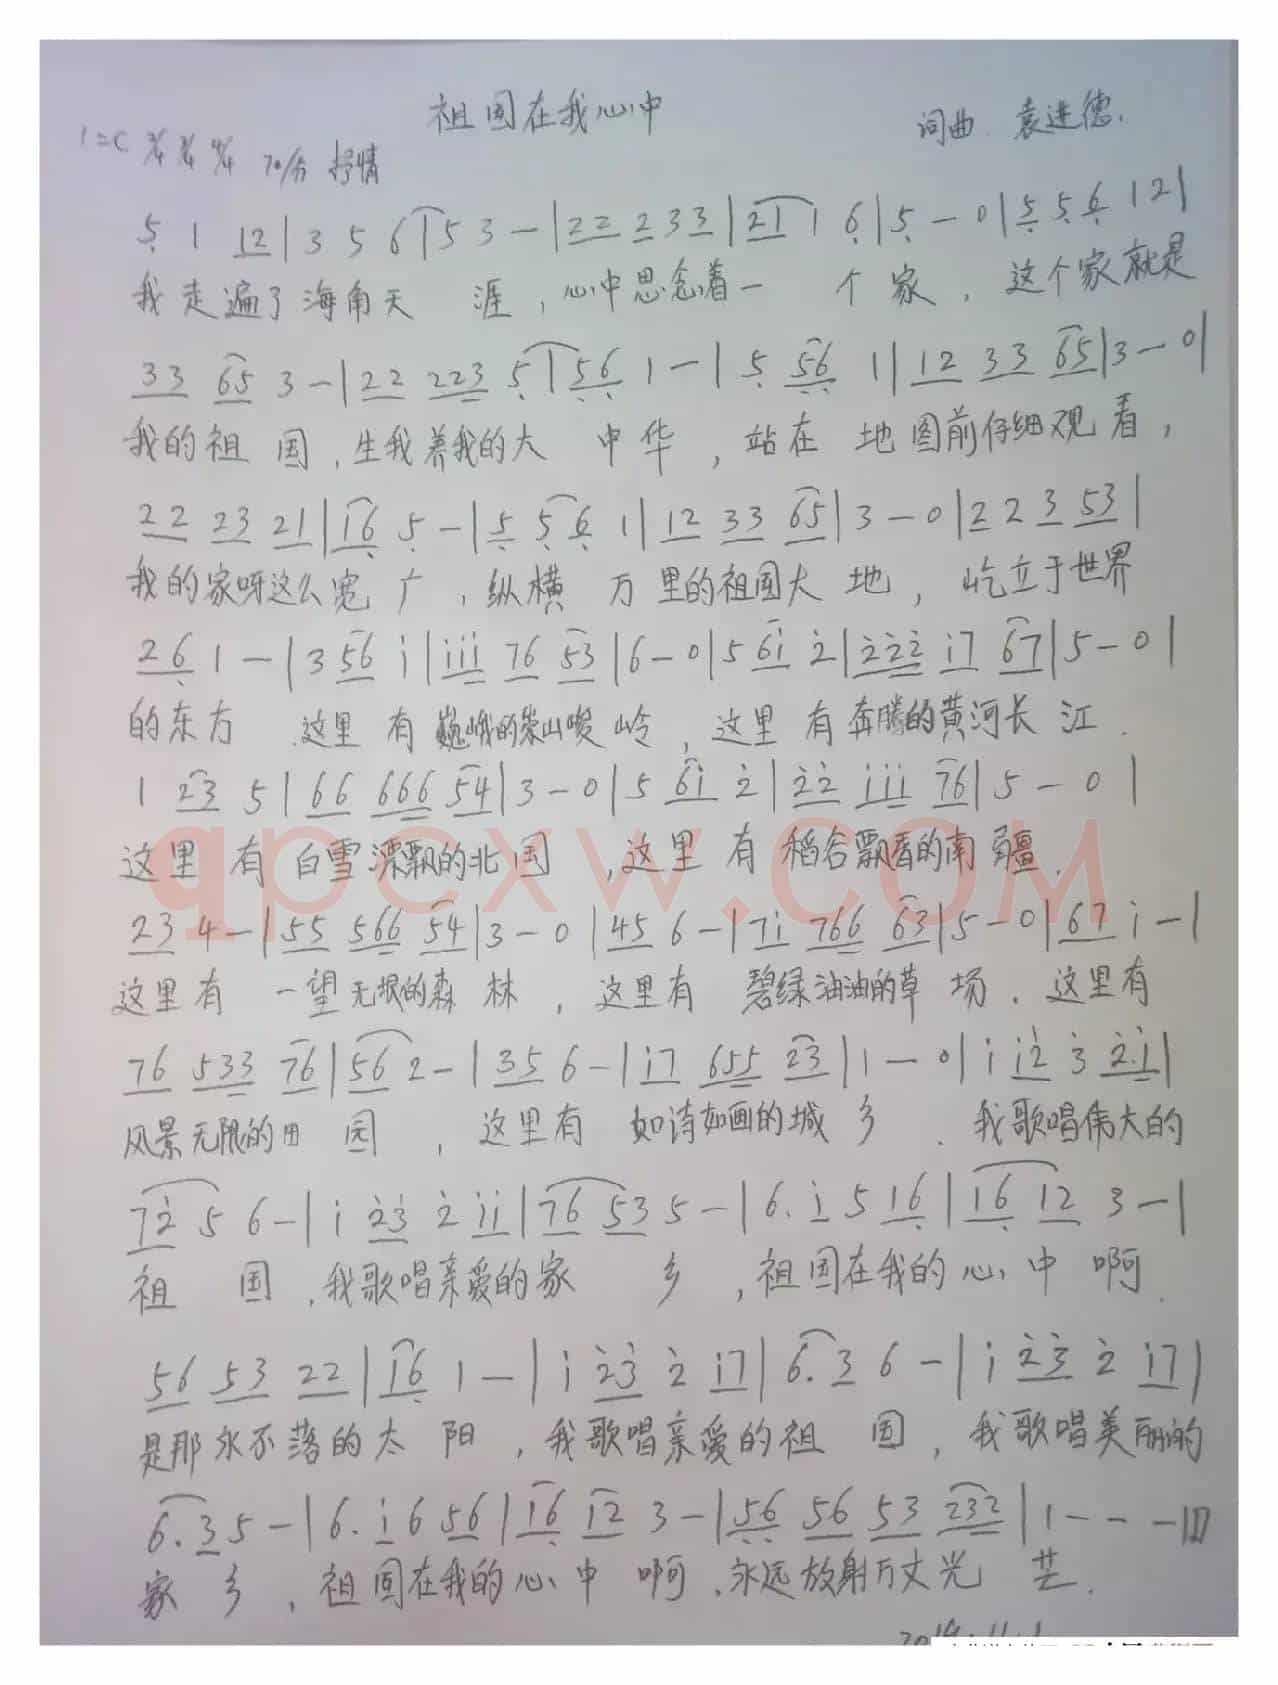 祖国在我心中
词曲 袁进德.
1=C 2/4 3/4 4/4 70/分 抒情
5̣ 1 12|3 5 6|53-|22 2 33|21 1 6̣|5̣ - 0|5̣ 5̣ 6̣ 12|
我走遍了海角天 涯,心中思念着一 个 家,这个家就是
33 65 3-|22 223 5̣|5̣6̣ 1-|5̣ 5̣6̣ 1|12 33 65|3-0|
我的祖 国,生我养我的大 中华,站在 地图前仔细观看,
22 23 21|16̣ 5̣-|5̣ 5̣6̣ 1|12 33 65|3-0|22 3 53|
我的家呀这么宽 广,纵横 万里的祖国大 地,屹立于世界
26̣ 1-|3 56 i|iii 76 53|6-0|5 6i 2̇|2̇2̇2̇ i7 67|5-0|
的东方.这里 有巍峨的崇山峻 岭,这里 有奔腾的黄河长 江.
1 23 5|66 666 54|3-0|5 6i 2̇|2̇2̇ iii 76|5-0|
这里 有 白雪漂飘的北 国,这里 有 稻谷飘香的南 疆.
qpcxw.com
23 4-|55 566 54|3-0|45 6-|7i 766 63|5-0|67 i-|
这里有 一望无垠的森 林,这里有 碧绿油油的草 场.这里有
76 533 76|56 2-|35 6-|i7 655 23|1-0|i i2̇ 3̇ 2̇.i|
风景无限的田 园,这里有 如诗如画的城 乡.我歌唱伟大的
72̇ 5 6-|i 2̇3̇ 2̇ ii|76 53 5-|6.i 5 16̣|16̣ 12 3-|
祖 国,我歌唱亲爱的家 乡,祖国在我的心中 啊.
56 53 22|16̣ 1-|i 2̇3̇ 2̇ i7|6.3 6-|i 2̇3̇ 2̇ i7|
是那永不落的太 阳,我歌唱亲爱的祖 国,我歌唱美丽的
6.3 5-|6.i 6 56|16̣ 12 3-|5̣6̣ 56 53 232|1---||
家 乡,祖国在我的心中 啊.永远放射万丈光 芒.